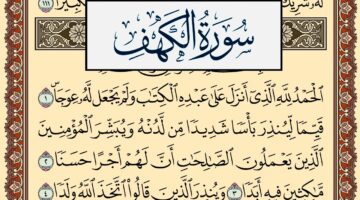 لَهُۥ شَرِيكٌ
كَبِيرًا ١١١
سُورَةُ الكَهْفِ
ٱلْحَمْدُ لِلَّهِ ٱلَّذِىٓ أَنزَلَ عَلَىٰ عَبْدِهِ ٱلْكِتَٰبَ وَلَمْ يَجْعَل لَّهُۥ عِوَجَا ۜ ١
قَيِّمًا لِّيُنذِرَ بَأْسًا شَدِيدًا مِّن لَّدُنْهُ وَيُبَشِّرَ ٱلْمُؤْمِنِينَ
ٱلَّذِينَ يَعْمَلُونَ ٱلصَّٰلِحَٰتِ أَنَّ لَهُمْ أَجْرًا حَسَنًا ٢
مَّٰكِثِينَ فِيهِ أَبَدًا ٣ وَيُنذِرَ ٱلَّذِينَ قَالُوا۟ ٱتَّخَذَ ٱللَّهُ وَلَدًا ٤